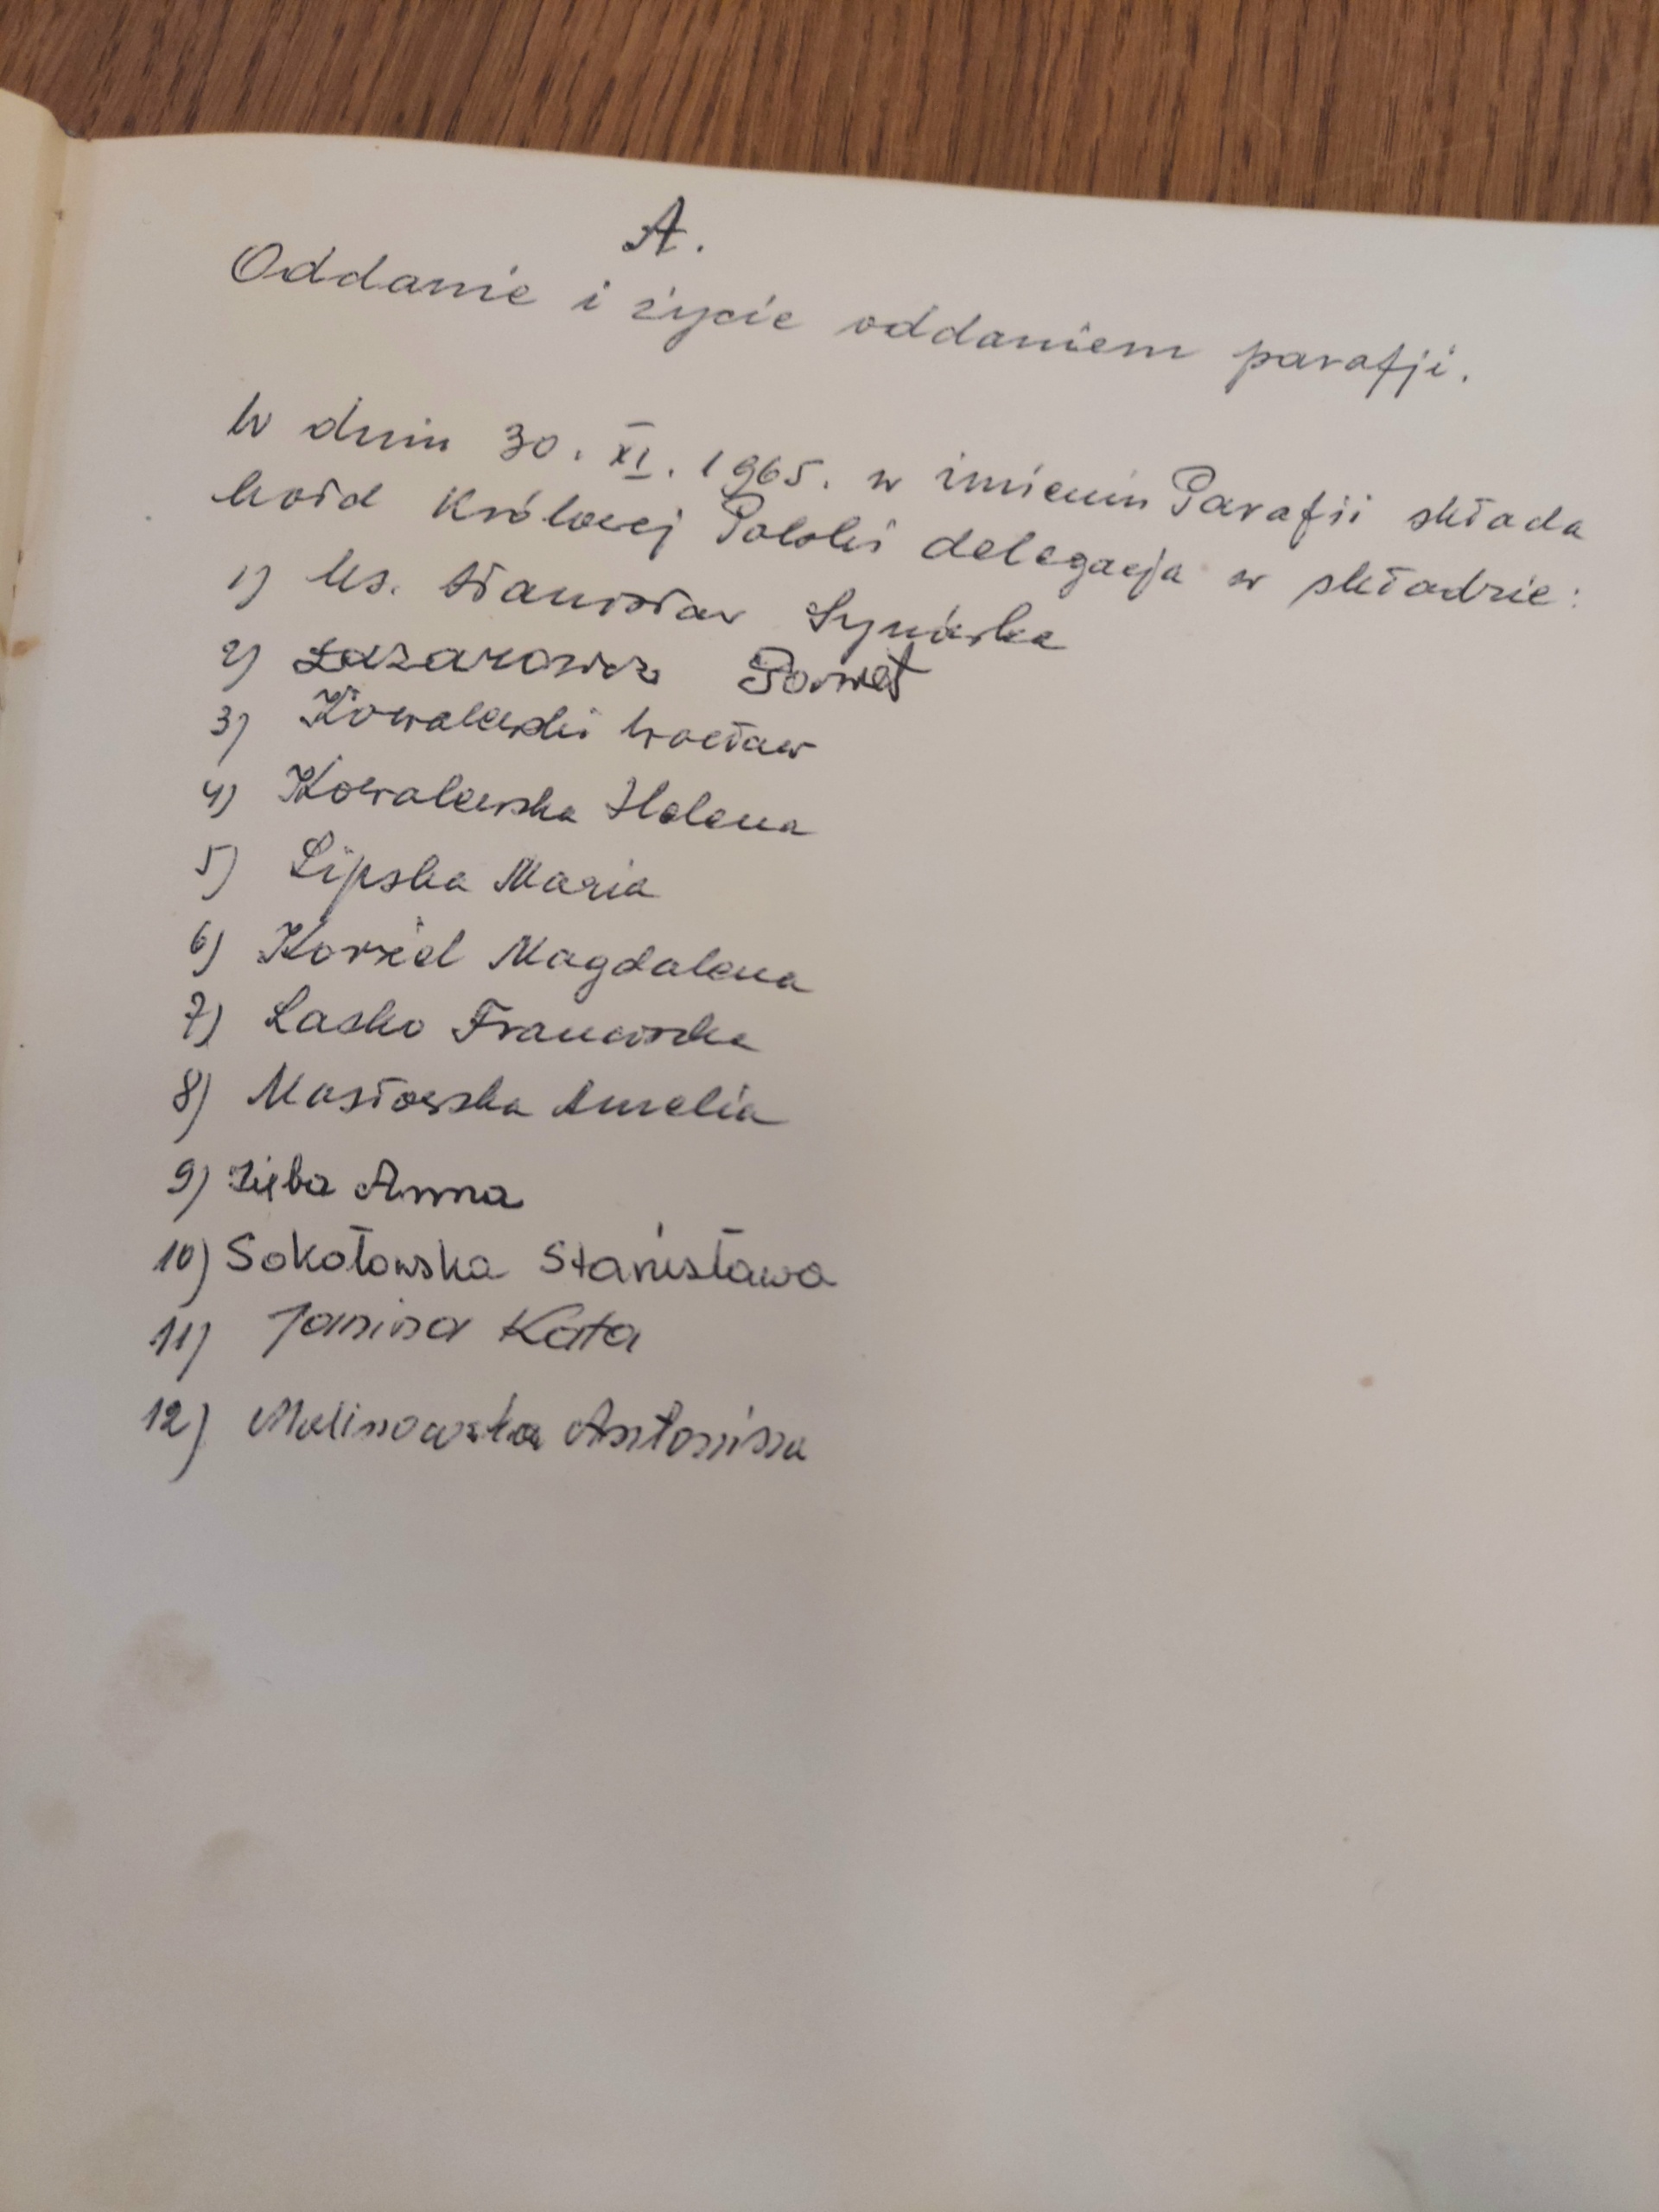 A.
Oddanie i życie oddaniem parafji.
W dniu 30. XI. 1965. w imieniu Parafii składa
hołd Królowej Polski delegacja w składzie:
1) Ks. Stanisław
2) Łazarowicz
3) Kowalewski Wacław
4) Kowalewska Helena
5) Lipska Maria
6) Magdalena
7) Lasko Franciszka
8) Masłowska Aurelia
9) Zięba Anna
10) Sokołowska Stanisława
11) Janina Kata
12) Malinowska Antonina